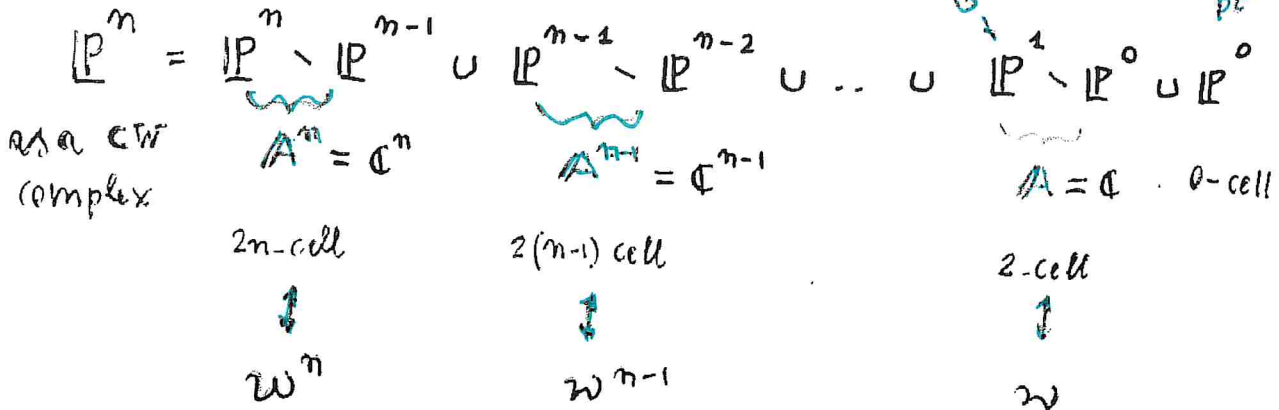 pt
ℙⁿ = ℙⁿ \ ℙⁿ⁻¹ ∪ ℙⁿ⁻¹ \ ℙⁿ⁻² ∪ .. ∪ ℙ¹ \ ℙ⁰ ∪ ℙ⁰
as a CW
complex
𝔸ⁿ = ℂⁿ 𝔸ⁿ⁻¹ = ℂⁿ⁻¹ 𝔸 = ℂ . 0-cell
2n-cell 2(n-1) cell 2-cell
↕ ↕ ↕
wⁿ wⁿ⁻¹ w